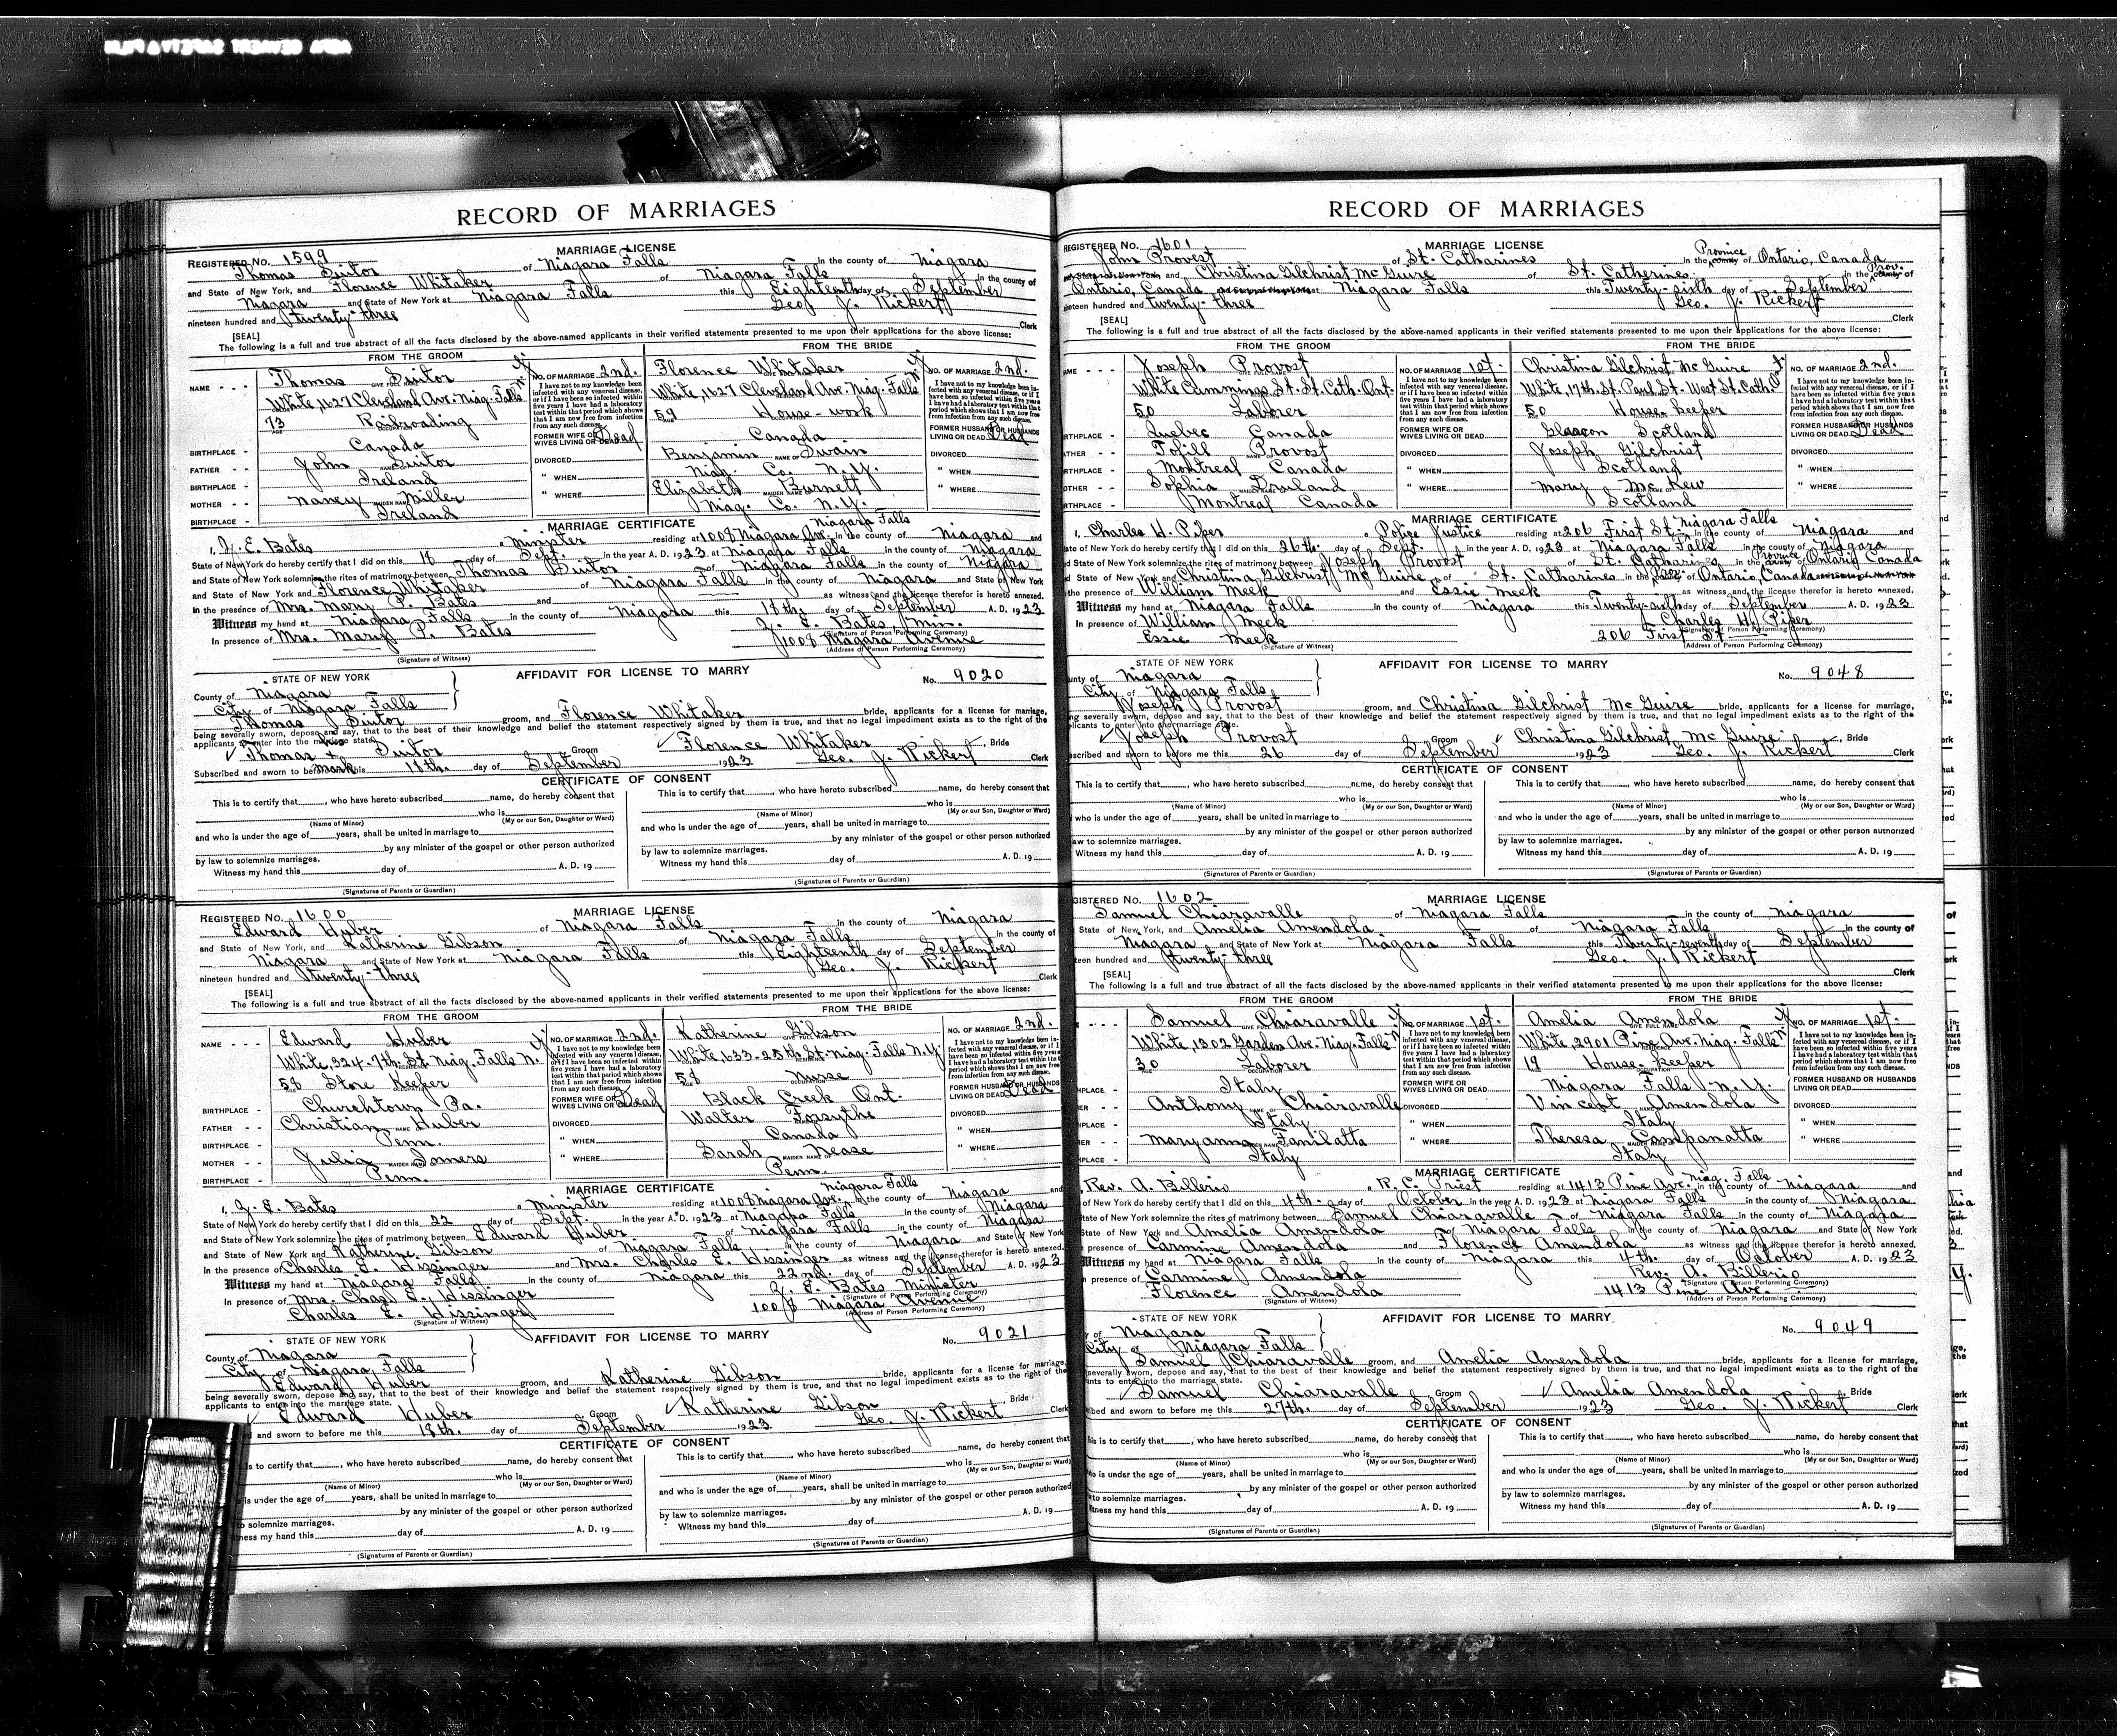 RECORD OF MARRIAGES
REGISTERED No. 1599 MARRIAGE LICENSE
Thomas Suitor of Niagara Falls in the county of Niagara
and State of New York, and Florence Whitaker of Niagara Falls in the county of
Niagara and State of New York at Niagara Falls this Eighteenth day of September
nineteen hundred and twenty-three Geo. J. Rickert Clerk
[SEAL]
The following is a full and true abstract of all the facts disclosed by the above-named applicants in their verified statements presented to me upon their applications for the above license:
FROM THE GROOM FROM THE BRIDE
NAME - - - Thomas Suitor NO. OF MARRIAGE 2nd. Florence Whitaker NO. OF MARRIAGE 2nd.
White, 1627 Cleveland Ave. Niag. Falls White, 1627 Cleveland Ave. Niag. Falls
I have not to my knowledge been infected with any venereal disease, or if I have been so infected within five years I have had a laboratory test within that period which shows that I am now free from infection from any such disease.
73 Railroading 59 House-work
FORMER WIFE OR WIVES LIVING OR DEAD Dead FORMER HUSBAND OR HUSBANDS LIVING OR DEAD Dead
BIRTHPLACE - Canada Canada
FATHER - - John Suitor DIVORCED Benjamin Swain DIVORCED
BIRTHPLACE - Ireland " WHEN Niag. Co. N.Y. " WHEN
MOTHER - - Nancy Miller " WHERE Elizabeth Burnett " WHERE
BIRTHPLACE - Ireland Niag. Co. N.Y.
MARRIAGE CERTIFICATE Niagara Falls
I, J. E. Bates a Minister residing at 1008 Niagara Ave. in the county of Niagara and
State of New York do hereby certify that I did on this 18 day of Sept. in the year A. D. 1923 at Niagara Falls in the county of Niagara
and State of New York solemnize the rites of matrimony between Thomas Suitor of Niagara Falls in the county of Niagara
and State of New York and Florence Whitaker of Niagara Falls in the county of Niagara and State of New York
in the presence of Mrs. Mary P. Bates and as witness and the license therefor is hereto annexed.
Witness my hand at Niagara Falls in the county of Niagara this 18th. day of September A. D. 1923
In presence of Mrs. Mary P. Bates J. E. Bates, Min.
(Signature of Person Performing Ceremony)
1008 Niagara Avenue
(Signature of Witness) (Address of Person Performing Ceremony)
STATE OF NEW YORK AFFIDAVIT FOR LICENSE TO MARRY No. 9020
County of Niagara
City of Niagara Falls
Thomas Suitor groom, and Florence Whitaker bride, applicants for a license for marriage,
being severally sworn, depose and say, that to the best of their knowledge and belief the statement respectively signed by them is true, and that no legal impediment exists as to the right of the
applicants to enter into the marriage state.
Thomas x Suitor Groom Florence Whitaker, Bride
Subscribed and sworn to before me this 18th. day of September 1923 Geo. J. Rickert Clerk
mark
CERTIFICATE OF CONSENT
This is to certify that , who have hereto subscribed name, do hereby consent that This is to certify that , who have hereto subscribed name, do hereby consent that
who is who is
(Name of Minor) (My or our Son, Daughter or Ward) (Name of Minor) (My or our Son, Daughter or Ward)
and who is under the age of years, shall be united in marriage to and who is under the age of years, shall be united in marriage to
by any minister of the gospel or other person authorized by any minister of the gospel or other person authorized
by law to solemnize marriages. by law to solemnize marriages.
Witness my hand this day of A. D. 19 Witness my hand this day of A. D. 19
(Signatures of Parents or Guardian) (Signatures of Parents or Guardian)
REGISTERED No. 1600 MARRIAGE LICENSE
Edward Huber of Niagara Falls in the county of Niagara
and State of New York, and Katherine Gibson of Niagara Falls in the county of
Niagara and State of New York at Niagara Falls this Eighteenth day of September
nineteen hundred and twenty-three Geo. J. Rickert Clerk
[SEAL]
The following is a full and true abstract of all the facts disclosed by the above-named applicants in their verified statements presented to me upon their applications for the above license:
FROM THE GROOM FROM THE BRIDE
NAME - - - Edward Huber NO. OF MARRIAGE 2nd. Katherine Gibson NO. OF MARRIAGE 2nd.
White, 324-7th St. Niag. Falls N. White, 633-25th St. Niag. Falls N.Y.
I have not to my knowledge been infected with any venereal disease, or if I have been so infected within five years I have had a laboratory test within that period which shows that I am now free from infection from any such disease.
58 Store Keeper 58 Nurse
FORMER WIFE OR WIVES LIVING OR DEAD Dead FORMER HUSBAND OR HUSBANDS LIVING OR DEAD Dead
BIRTHPLACE - Churchtown Pa. Black Creek Ont.
FATHER - - Christian Huber DIVORCED Walter Forsythe DIVORCED
BIRTHPLACE - Penn. " WHEN Canada " WHEN
MOTHER - - Julia Somers " WHERE Sarah Nease " WHERE
BIRTHPLACE - Penn. Penn.
MARRIAGE CERTIFICATE Niagara Falls
I, J. E. Bates a Minister residing at 1008 Niagara Ave. in the county of Niagara and
State of New York do hereby certify that I did on this 22 day of Sept. in the year A. D. 1923 at Niagara Falls in the county of Niagara
and State of New York solemnize the rites of matrimony between Edward Huber of Niagara Falls in the county of Niagara
and State of New York and Katherine Gibson of Niagara Falls in the county of Niagara and State of New York
in the presence of Charles E. Hissinger and Mrs. Charles E. Hissinger as witness and the license therefor is hereto annexed.
Witness my hand at Niagara Falls in the county of Niagara this 22nd. day of September A. D. 1923
In presence of Mrs. Chas. E. Hissinger J. E. Bates Minister
(Signature of Person Performing Ceremony)
Charles E. Hissinger 1008 Niagara Avenue
(Signature of Witness) (Address of Person Performing Ceremony)
STATE OF NEW YORK AFFIDAVIT FOR LICENSE TO MARRY No. 9021
County of Niagara
City of Niagara Falls
Edward Huber groom, and Katherine Gibson bride, applicants for a license for marriage,
being severally sworn, depose and say, that to the best of their knowledge and belief the statement respectively signed by them is true, and that no legal impediment exists as to the right of the
applicants to enter into the marriage state.
Edward Huber Groom Katherine Gibson, Bride
d and sworn to before me this 18th. day of September 1923 Geo. J. Rickert Clerk
CERTIFICATE OF CONSENT
is to certify that , who have hereto subscribed name, do hereby consent that This is to certify that , who have hereto subscribed name, do hereby consent that
who is who is
(Name of Minor) (My or our Son, Daughter or Ward) (Name of Minor) (My or our Son, Daughter or Ward)
o is under the age of years, shall be united in marriage to and who is under the age of years, shall be united in marriage to
by any minister of the gospel or other person authorized by any minister of the gospel or other person authorized
to solemnize marriages. by law to solemnize marriages.
ness my hand this day of A. D. 19 Witness my hand this day of A. D. 19
(Signatures of Parents or Guardian) (Signatures of Parents or Guardian)
RECORD OF MARRIAGES
REGISTERED No. 1601 MARRIAGE LICENSE
John Provost of St. Catharines in the Province of Ontario, Canada
and State of New York and Christina Gilchrist McGuire of St. Catherines in the Prov. of
Ontario, Canada at Niagara Falls this Twenty-sixth day of September
neteen hundred and twenty-three Geo. J. Rickert Clerk
[SEAL]
The following is a full and true abstract of all the facts disclosed by the above-named applicants in their verified statements presented to me upon their applications for the above license:
FROM THE GROOM FROM THE BRIDE
AME - - - Joseph Provost NO. OF MARRIAGE 1st. Christina Gilchrist McGuire NO. OF MARRIAGE 2nd.
White Cummings St. St. Cath. Ont. White, 17th. St. Paul St. West St. Cath.
I have not to my knowledge been infected with any venereal disease, or if I have been so infected within five years I have had a laboratory test within that period which shows that I am now free from infection from any such disease.
50 Laborer 50 House keeper
FORMER WIFE OR WIVES LIVING OR DEAD FORMER HUSBAND OR HUSBANDS LIVING OR DEAD Dead
IRTHPLACE - Quebec Canada Glasgon Scotland
ATHER - - Tofill Provost DIVORCED Joseph Gilchrist DIVORCED
RTHPLACE - Montreal Canada " WHEN Scotland " WHEN
OTHER - - Sophia Druland " WHERE Mary McKew " WHERE
RTHPLACE - Montreal Canada Scotland
MARRIAGE CERTIFICATE Niagara Falls
I, Charles H. Piper a Police Justice residing at 206 First St. in the county of Niagara and
ate of New York do hereby certify that I did on this 26th. day of Sept. in the year A. D. 1923 at Niagara Falls in the county of Niagara
d State of New York solemnize the rites of matrimony between Joseph Provost of St. Catharines in the Province of Ontario Canada
d State of New York and Christina Gilchrist McGuire of St. Catharines in the Prov. of Ontario, Canada
the presence of William Meek and Essie Meek as witness and the license therefor is hereto annexed.
Witness my hand at Niagara Falls in the county of Niagara this Twenty-sixth day of September A. D. 1923
In presence of William Meek Charles H. Piper
(Signature of Person Performing Ceremony)
Essie Meek 206 First St.
(Signature of Witness) (Address of Person Performing Ceremony)
STATE OF NEW YORK AFFIDAVIT FOR LICENSE TO MARRY No. 9048
unty of Niagara
City of Niagara Falls
Joseph Provost groom, and Christina Gilchrist McGuire bride, applicants for a license for marriage,
ng severally sworn, depose and say, that to the best of their knowledge and belief the statement respectively signed by them is true, and that no legal impediment exists as to the right of the
plicants to enter into the marriage state.
Joseph Provost Groom Christina Gilchrist McGuire, Bride
bscribed and sworn to before me this 26 day of September 1923 Geo. J. Rickert Clerk
CERTIFICATE OF CONSENT
This is to certify that , who have hereto subscribed name, do hereby consent that This is to certify that , who have hereto subscribed name, do hereby consent that
who is who is
(Name of Minor) (My or our Son, Daughter or Ward) (Name of Minor) (My or our Son, Daughter or Ward)
who is under the age of years, shall be united in marriage to and who is under the age of years, shall be united in marriage to
by any minister of the gospel or other person authorized by any minister of the gospel or other person authorized
aw to solemnize marriages. by law to solemnize marriages.
Witness my hand this day of A. D. 19 Witness my hand this day of A. D. 19
(Signatures of Parents or Guardian) (Signatures of Parents or Guardian)
GISTERED No. 1602 MARRIAGE LICENSE
Samuel Chiaravalle of Niagara Falls in the county of Niagara
State of New York, and Amelia Amendola of Niagara Falls in the county of
Niagara and State of New York at Niagara Falls this Twenty-seventh day of September
teen hundred and twenty-three Geo. J. Rickert Clerk
[SEAL]
The following is a full and true abstract of all the facts disclosed by the above-named applicants in their verified statements presented to me upon their applications for the above license:
FROM THE GROOM FROM THE BRIDE
- - - Samuel Chiaravalle NO. OF MARRIAGE 1st. Amelia Amendola NO. OF MARRIAGE 1st.
White, 1302 Garden Ave. Niag. Falls White, 2901 Pine Ave. Niag. Falls
I have not to my knowledge been infected with any venereal disease, or if I have been so infected within five years I have had a laboratory test within that period which shows that I am now free from infection from any such disease.
30 Laborer 19 House keeper
FORMER WIFE OR WIVES LIVING OR DEAD FORMER HUSBAND OR HUSBANDS LIVING OR DEAD
PLACE - Italy Niagara Falls N.Y.
ER - - Anthony Chiaravalle DIVORCED Vincent Amendola DIVORCED
PLACE - Italy " WHEN Italy " WHEN
ER - - Maryanna Familatta " WHERE Theresa Campanatta " WHERE
PLACE - Italy Italy
MARRIAGE CERTIFICATE Niag. Falls
Rev. A. Billerio a R. C. Priest residing at 1413 Pine Ave. in the county of Niagara and
of New York do hereby certify that I did on this 4th. day of October in the year A. D. 1923 at Niagara Falls in the county of Niagara
State of New York solemnize the rites of matrimony between Samuel Chiaravalle of Niagara Falls in the county of Niagara
State of New York and Amelia Amendola of Niagara Falls in the county of Niagara and State of New York
presence of Carmine Amendola and Florence Amendola as witness and the license therefor is hereto annexed.
Witness my hand at Niagara Falls in the county of Niagara this 4th. day of October A. D. 1923
presence of Carmine Amendola Rev. A. Billerio
(Signature of Person Performing Ceremony)
Florence Amendola 1413 Pine Ave.
(Signature of Witness) (Address of Person Performing Ceremony)
STATE OF NEW YORK AFFIDAVIT FOR LICENSE TO MARRY No. 9049
y of Niagara
City of Niagara Falls
Samuel Chiaravalle groom, and Amelia Amendola bride, applicants for a license for marriage,
severally sworn, depose and say, that to the best of their knowledge and belief the statement respectively signed by them is true, and that no legal impediment exists as to the right of the
ants to enter into the marriage state.
Samuel Chiaravalle Groom Amelia Amendola Bride
ibed and sworn to before me this 27th. day of September 1923 Geo. J. Rickert Clerk
CERTIFICATE OF CONSENT
his is to certify that , who have hereto subscribed name, do hereby consent that This is to certify that , who have hereto subscribed name, do hereby consent that
who is who is
(Name of Minor) (My or our Son, Daughter or Ward) (Name of Minor) (My or our Son, Daughter or Ward)
ho is under the age of years, shall be united in marriage to and who is under the age of years, shall be united in marriage to
by any minister of the gospel or other person authorized by any minister of the gospel or other person authorized
to solemnize marriages. by law to solemnize marriages.
itness my hand this day of A. D. 19 Witness my hand this day of A. D. 19
(Signatures of Parents or Guardian) (Signatures of Parents or Guardian)